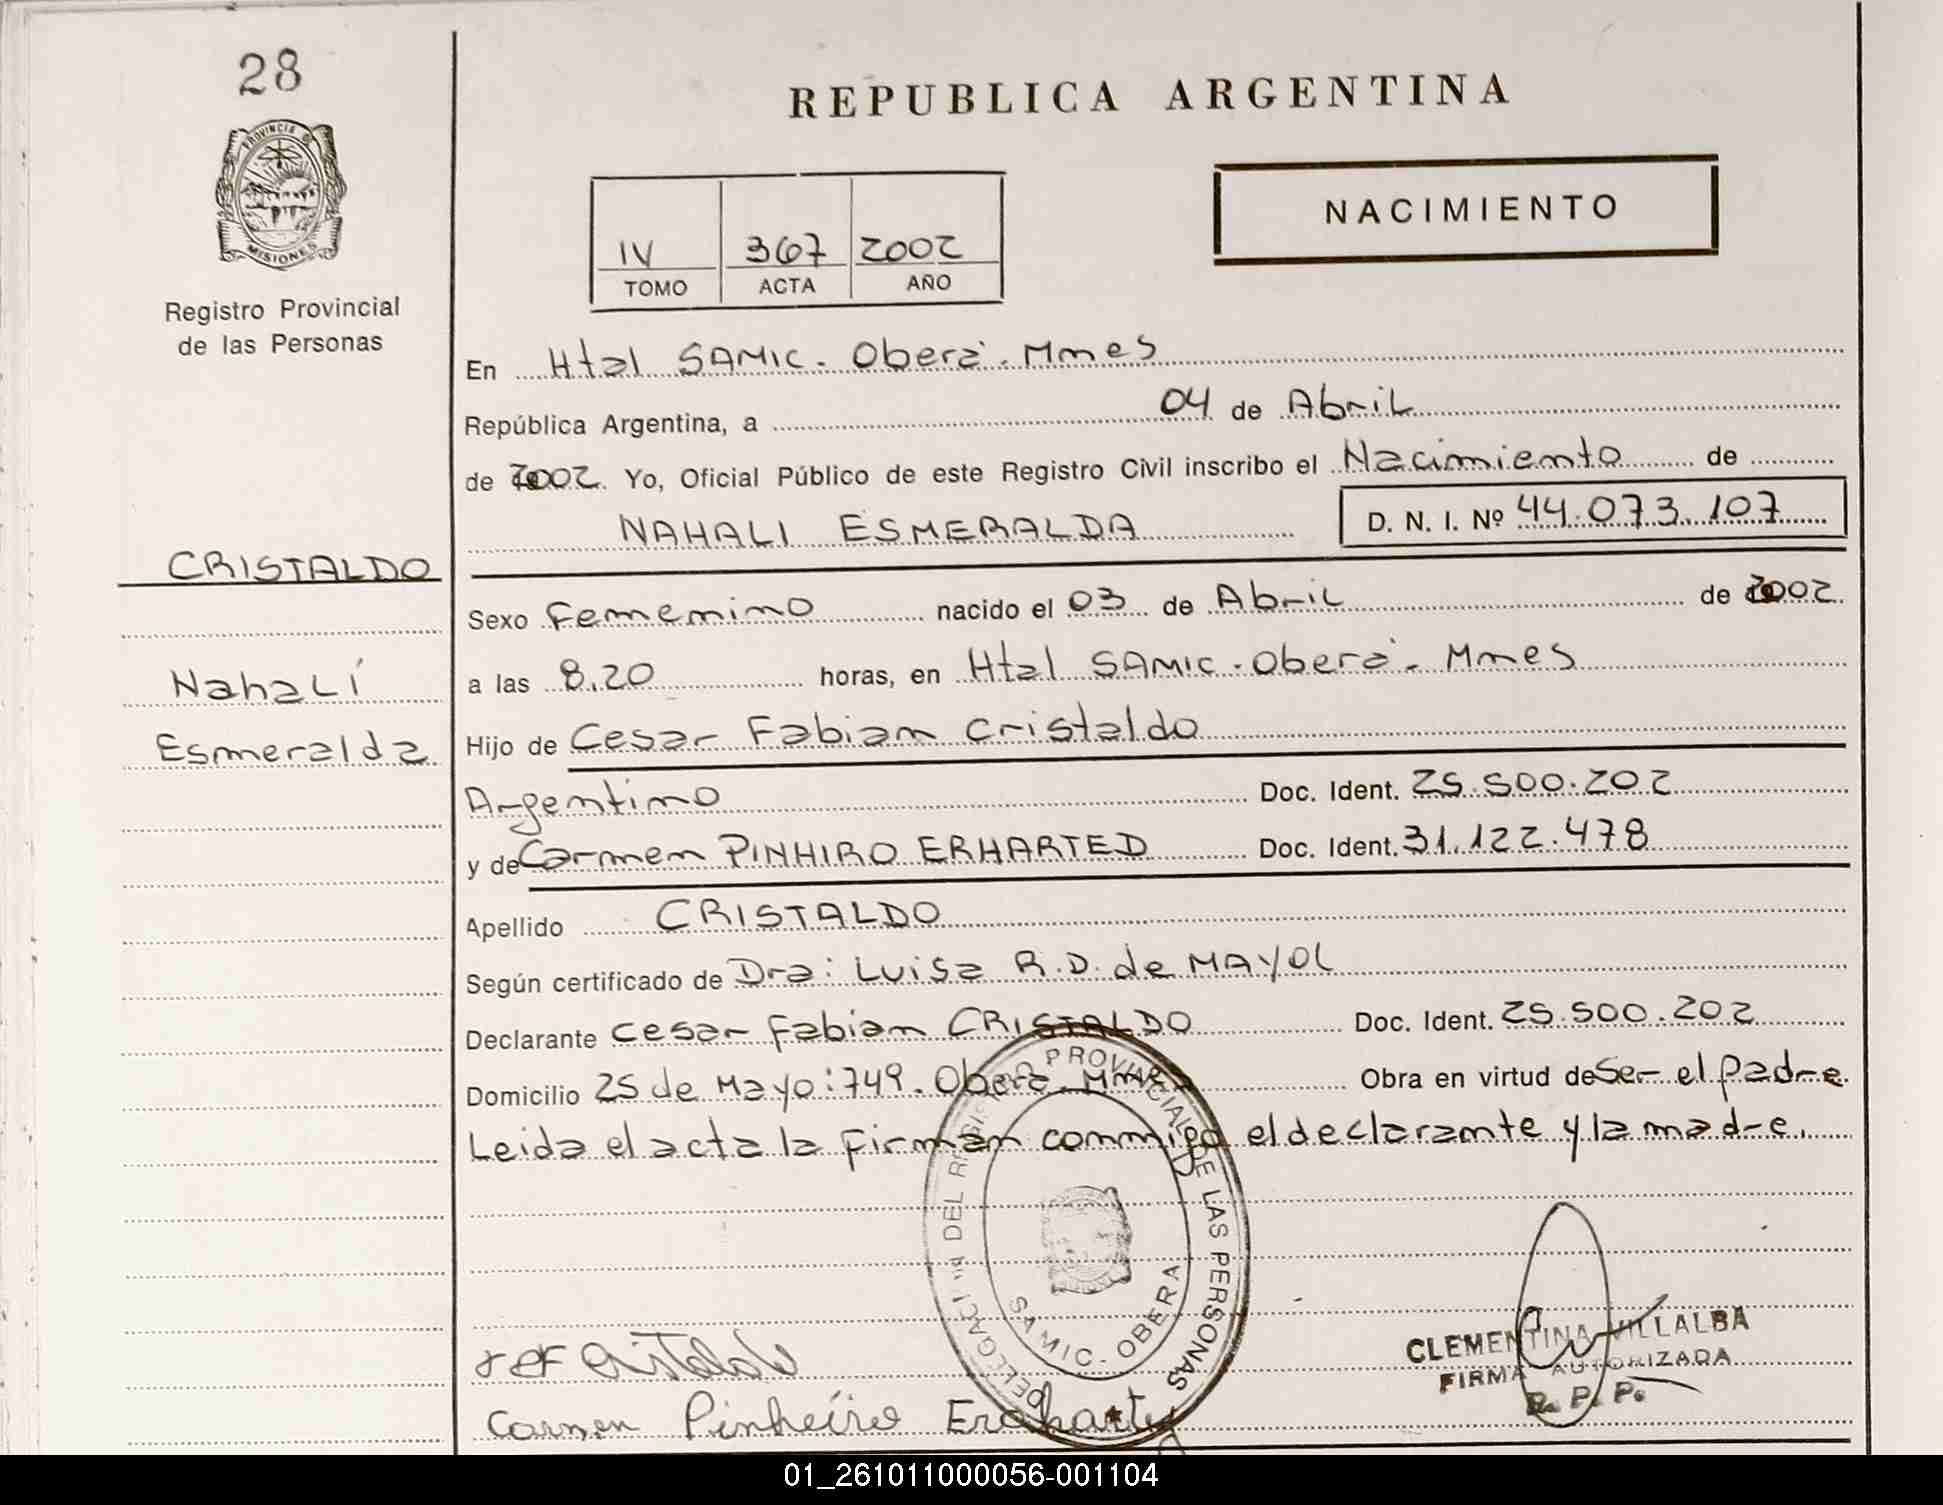 28
PROVINCIA DE
MISIONES
Registro Provincial
de las Personas
CRISTALDO
Nahalí
Esmeralda
REPUBLICA ARGENTINA
IV 367 2002
TOMO ACTA AÑO
NACIMIENTO
En Htal SAMIC. Oberá. Mnes
República Argentina, a 04 de Abril
de 2002. Yo, Oficial Público de este Registro Civil inscribo el Nacimiento de
NAHALI ESMERALDA D. N. I. Nº 44.073.107
Sexo Femenino nacido el 03 de Abril de 2002
a las 8.20 horas, en Htal SAMIC. Oberá. Mnes
Hijo de Cesar Fabian Cristaldo
Argentino Doc. Ident. 25.500.202
y de Carmen PINHIRO ERHARTED Doc. Ident. 31.122.478
Apellido CRISTALDO
Según certificado de Dra: Luisa R.D. de MAYOL
Declarante Cesar Fabian CRISTALDO Doc. Ident. 25.500.202
Domicilio 25 de Mayo: 749. Oberá. Mnes Obra en virtud de Ser el padre
Leida el acta la firman conmigo el declarante y la madre.
DEL REGISTRO PROVINCIAL DE LAS PERSONAS
SAMIC. OBERA
Cristaldo
Carmen Pinheiro
CLEMENTINA VILLALBA
FIRMA AUTORIZADA
R. P. P.
01_261011000056-001104